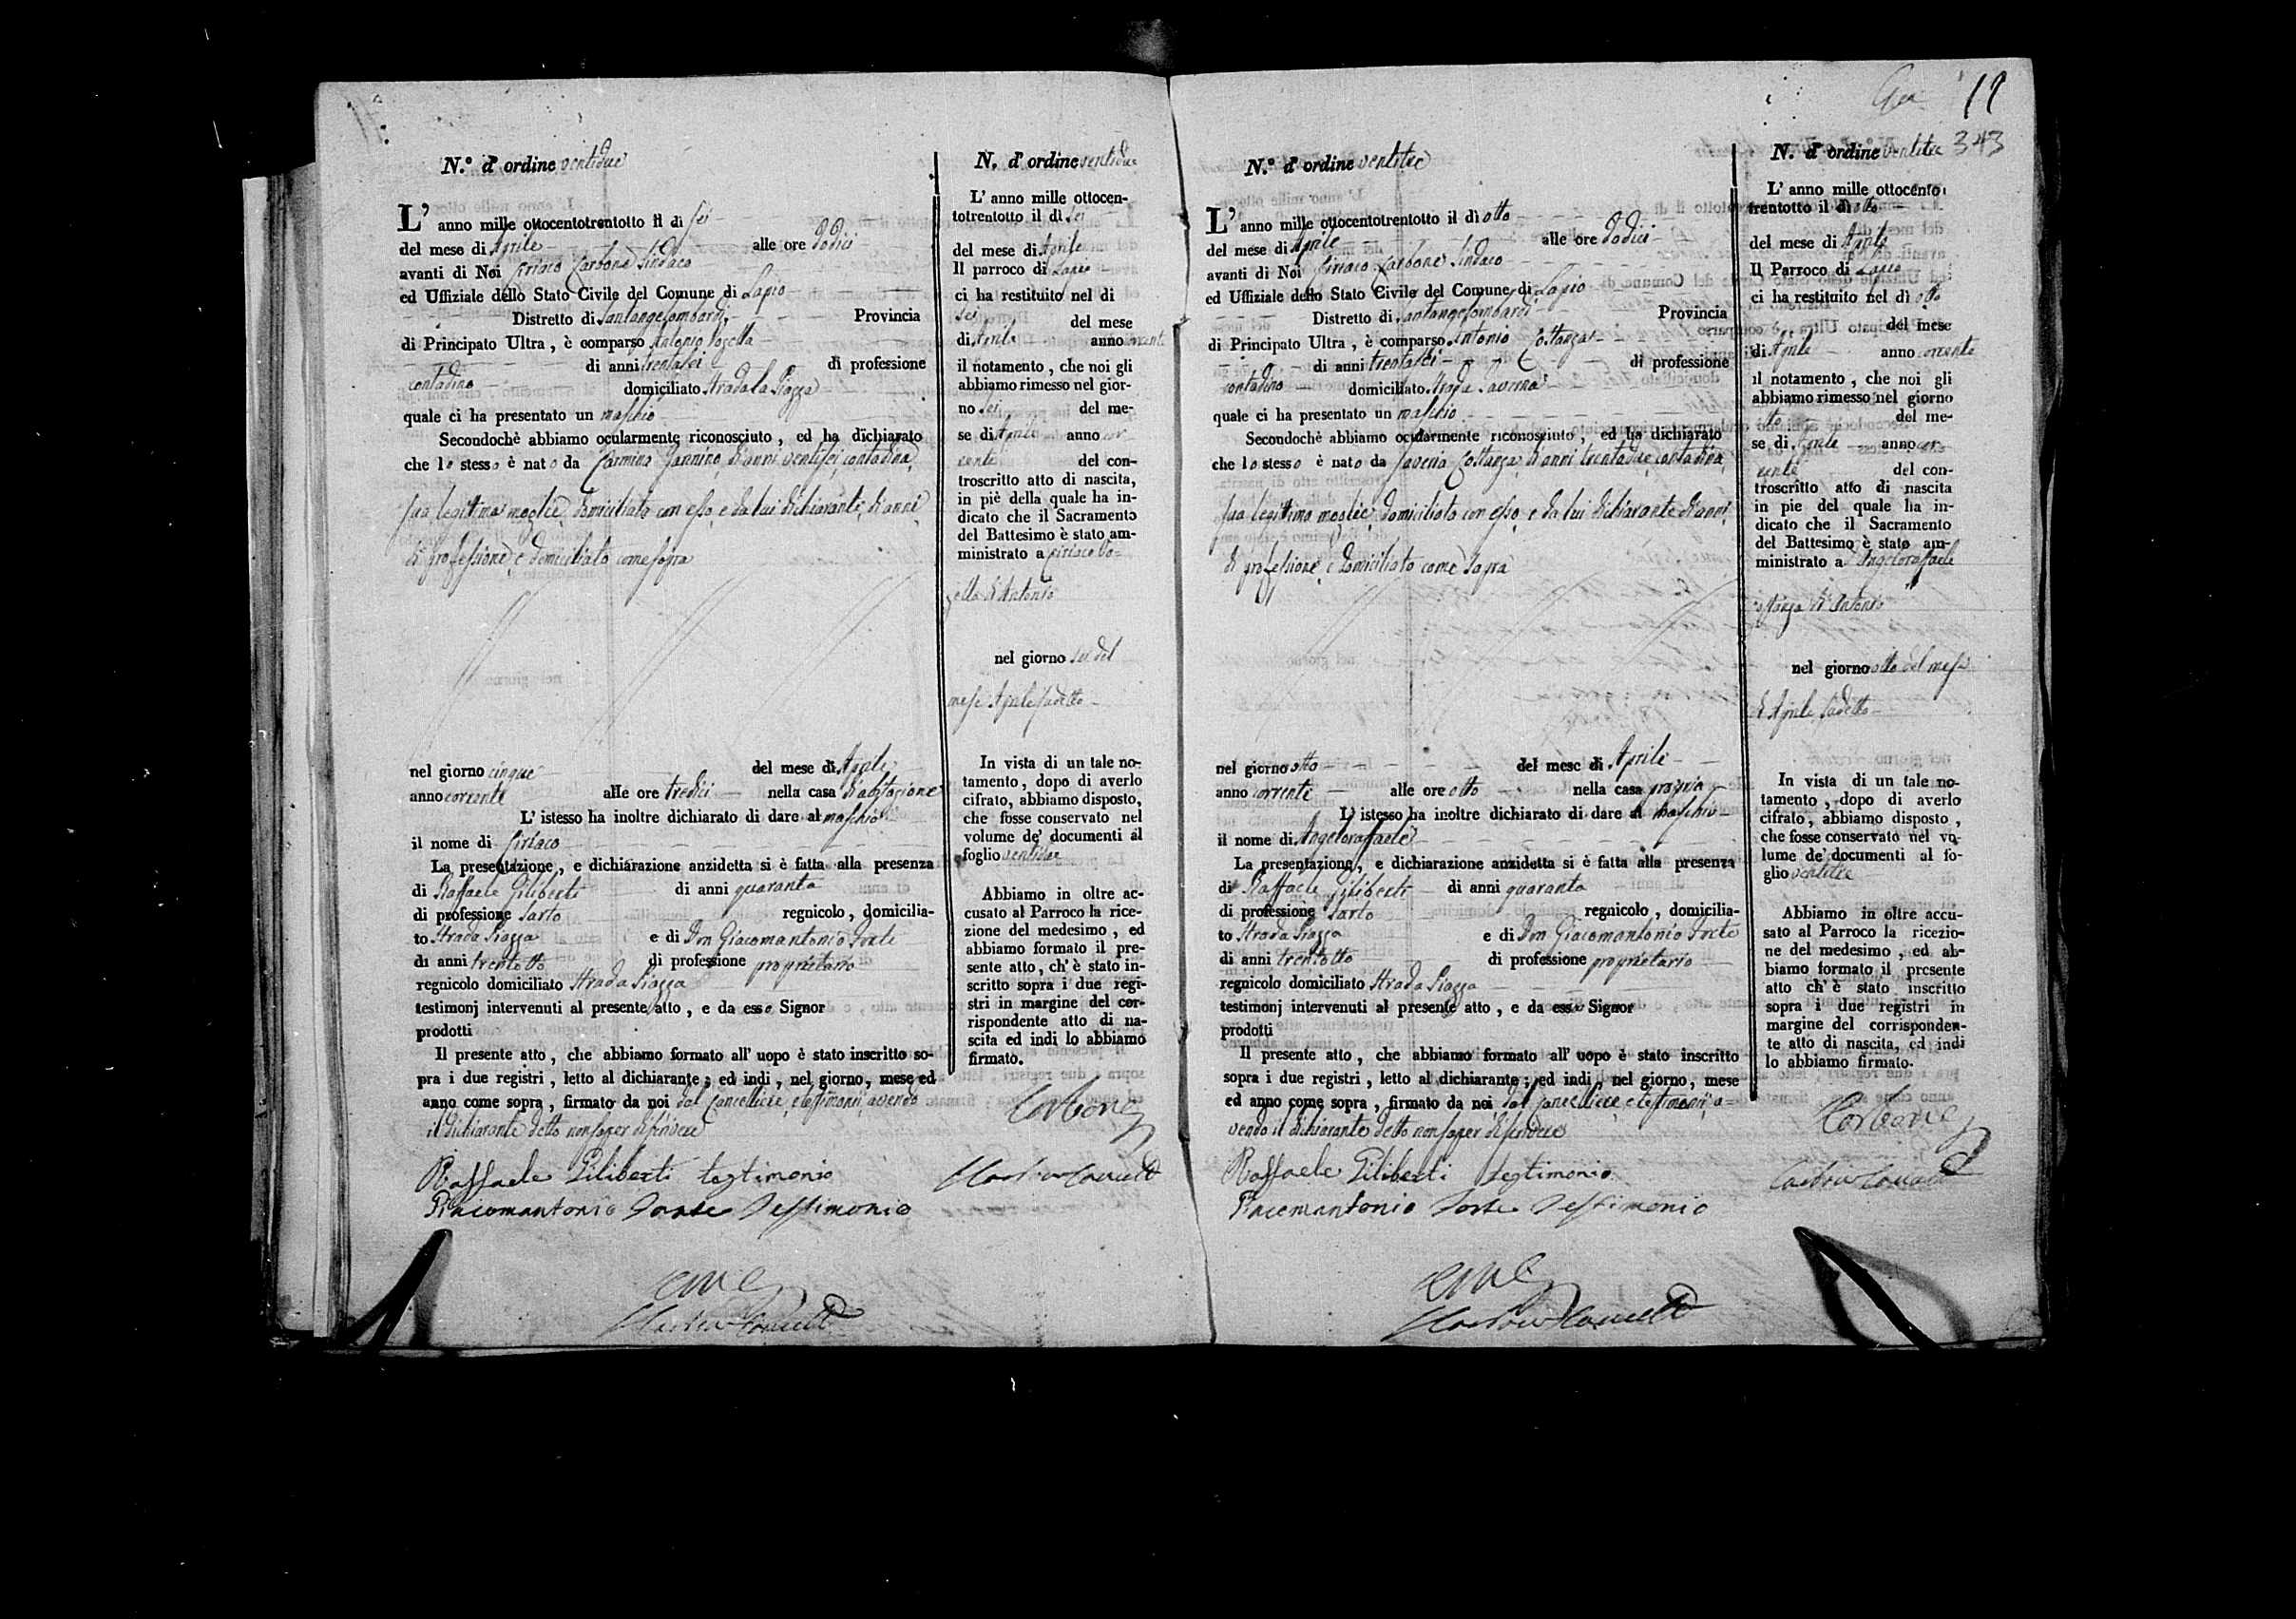 N.º d' ordine ventidue
L' anno mille ottocentotrentotto il dì sei
del mese di Aprile alle ore dodici
avanti di Noi Ciriaco Carbone Sindaco
ed Uffiziale dello Stato Civile del Comune di Lapio
Distretto di Santangelombardi Provincia
di Principato Ultra , è comparso Antonio
di anni trentasei di professione
contadino domiciliato Strada la Piazza
quale ci ha presentato un maschio
Secondochè abbiamo ocularmente riconosciuto , ed ha dichiarato
che lo stesso è nato da Carmina Jannino di anni ventisei contadina
sua legittima moglie domiciliata con esso e da lui dichiarante di anni
di professione e domiciliato come sopra
nel giorno cinque del mese di Aprile
anno corrente alle ore tredici nella casa di abitazione
L' istesso ha inoltre dichiarato di dare al maschio
il nome di Ciriaco
La presentazione , e dichiarazione anzidetta si è fatta alla presenza
di Raffaele Giliberti di anni quaranta
di professione Sarto regnicolo , domicilia-
to Strada Piazza e di Don Giacomantonio Forte
di anni trentotto di professione proprietario
regnicolo domiciliato Strada Piazza
testimonj intervenuti al presente atto , e da esso Signor
prodotti
Il presente atto , che abbiamo formato all' uopo è stato inscritto so-
pra i due registri , letto al dichiarante ; ed indi , nel giorno, mese ed
anno come sopra , firmato da noi dal Cancelliere, e testimonii avendo
il dichiarante detto non saper scrivere
Raffaele Giliberti testimonio
Giacomantonio Forte Testimonio
N. d' ordine ventidue
L' anno mille ottocen-
totrentotto il dì sei
del mese di Aprile
Il parroco di Lapio
ci ha restituito nel di
sei del mese
di Aprile anno corrente
il notamento , che noi gli
abbiamo rimesso nel gior-
no sei del me-
se di Aprile anno cor-
rente del con-
troscritto atto di nascita,
in piè della quale ha in-
dicato che il Sacramento
del Battesimo è stato am-
ministrato a Ciriaco
di Antonio
nel giorno sei del
mese Aprile sudetto
In vista di un tale no-
tamento , dopo di averlo
cifrato, abbiamo disposto,
che fosse conservato nel
volume de' documenti al
foglio ventidue
Abbiamo in oltre ac-
cusato al Parroco la rice-
zione del medesimo , ed
abbiamo formato il pre-
sente atto, ch' è stato in-
scritto sopra i due regi-
stri in margine del cor-
rispondente atto di na-
scita ed indi lo abbiamo
firmato.
Carbone
19
343
N.º d' ordine ventitre
L' anno mille ottocentotrentotto il dì otto
del mese di Aprile alle ore dodici
avanti di Noi Ciriaco Carbone Sindaco
ed Uffiziale dello Stato Civile del Comune di Lapio
Distretto di Santangelombardi Provincia
di Principato Ultra , è comparso Antonio Costanza
di anni trentasei di professione
contadino domiciliato Strada Taverna
quale ci ha presentato un maschio
Secondochè abbiamo ocularmente riconosciuto , ed ha dichiarato
che lo stesso è nato da Saveria Costanza di anni trentadue contadina
sua legittima moglie domiciliata con esso e da lui dichiarante di anni
di professione e domiciliato come sopra
nel giorno otto del mese di Aprile
anno corrente alle ore otto nella casa propria
L' istesso ha inoltre dichiarato di dare al maschio
il nome di Angeloraffaele
La presentazione , e dichiarazione anzidetta si è fatta alla presenza
di Raffaele Giliberti di anni quaranta
di professione Sarto regnicolo , domicilia-
to Strada Piazza e di Don Giacomantonio Forte
di anni trentotto di professione proprietario
regnicolo domiciliato Strada Piazza
testimonj intervenuti al presente atto , e da esso Signor
prodotti
Il presente atto , che abbiamo formato all' uopo è stato inscritto
sopra i due registri , letto al dichiarante ; ed indi , nel giorno, mese
ed anno come sopra , firmato da noi, dal Cancelliere e testimonii a=
vendo il dichiarante detto non saper scrivere
Raffaele Giliberti testimonio
Giacomantonio Forte Testimonio
N. d' ordine ventitre
L' anno mille ottocento
trentotto il dì otto
del mese di Aprile
Il Parroco di Lapio
ci ha restituito nel dì otto
del mese
di Aprile anno corrente
il notamento , che noi gli
abbiamo rimesso nel giorno
otto del me-
se di Aprile anno cor-
rente del con-
troscritto atto di nascita
in pie del quale ha in-
dicato che il Sacramento
del Battesimo è stato am-
ministrato a Angeloraffaele
Costanza di Antonio
nel giorno otto del mese
di Aprile sudetto
In vista di un tale no-
tamento , dopo di averlo
cifrato, abbiamo disposto ,
che fosse conservato nel vo-
lume de' documenti al fo-
glio ventitre
Abbiamo in oltre accu-
sato al Parroco la ricezio-
ne del medesimo , ed ab-
biamo formato il presente
atto ch' è stato inscritto
sopra i due registri in
margine del corrisponden-
te atto di nascita, ed indi
lo abbiamo firmato.
Carbone